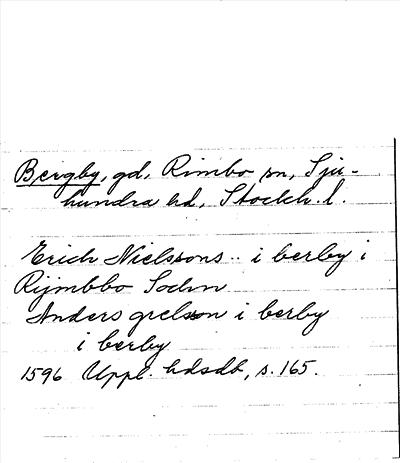 Bergby, gd, Rimbo sn, Sju-
hundra hd, Stockh. l.
Erich Nielssons .. i berby i
Rijmbbo Sochn
Anders grelsson i berby
i berby
1596 Uppl. hdsdb, s. 165.